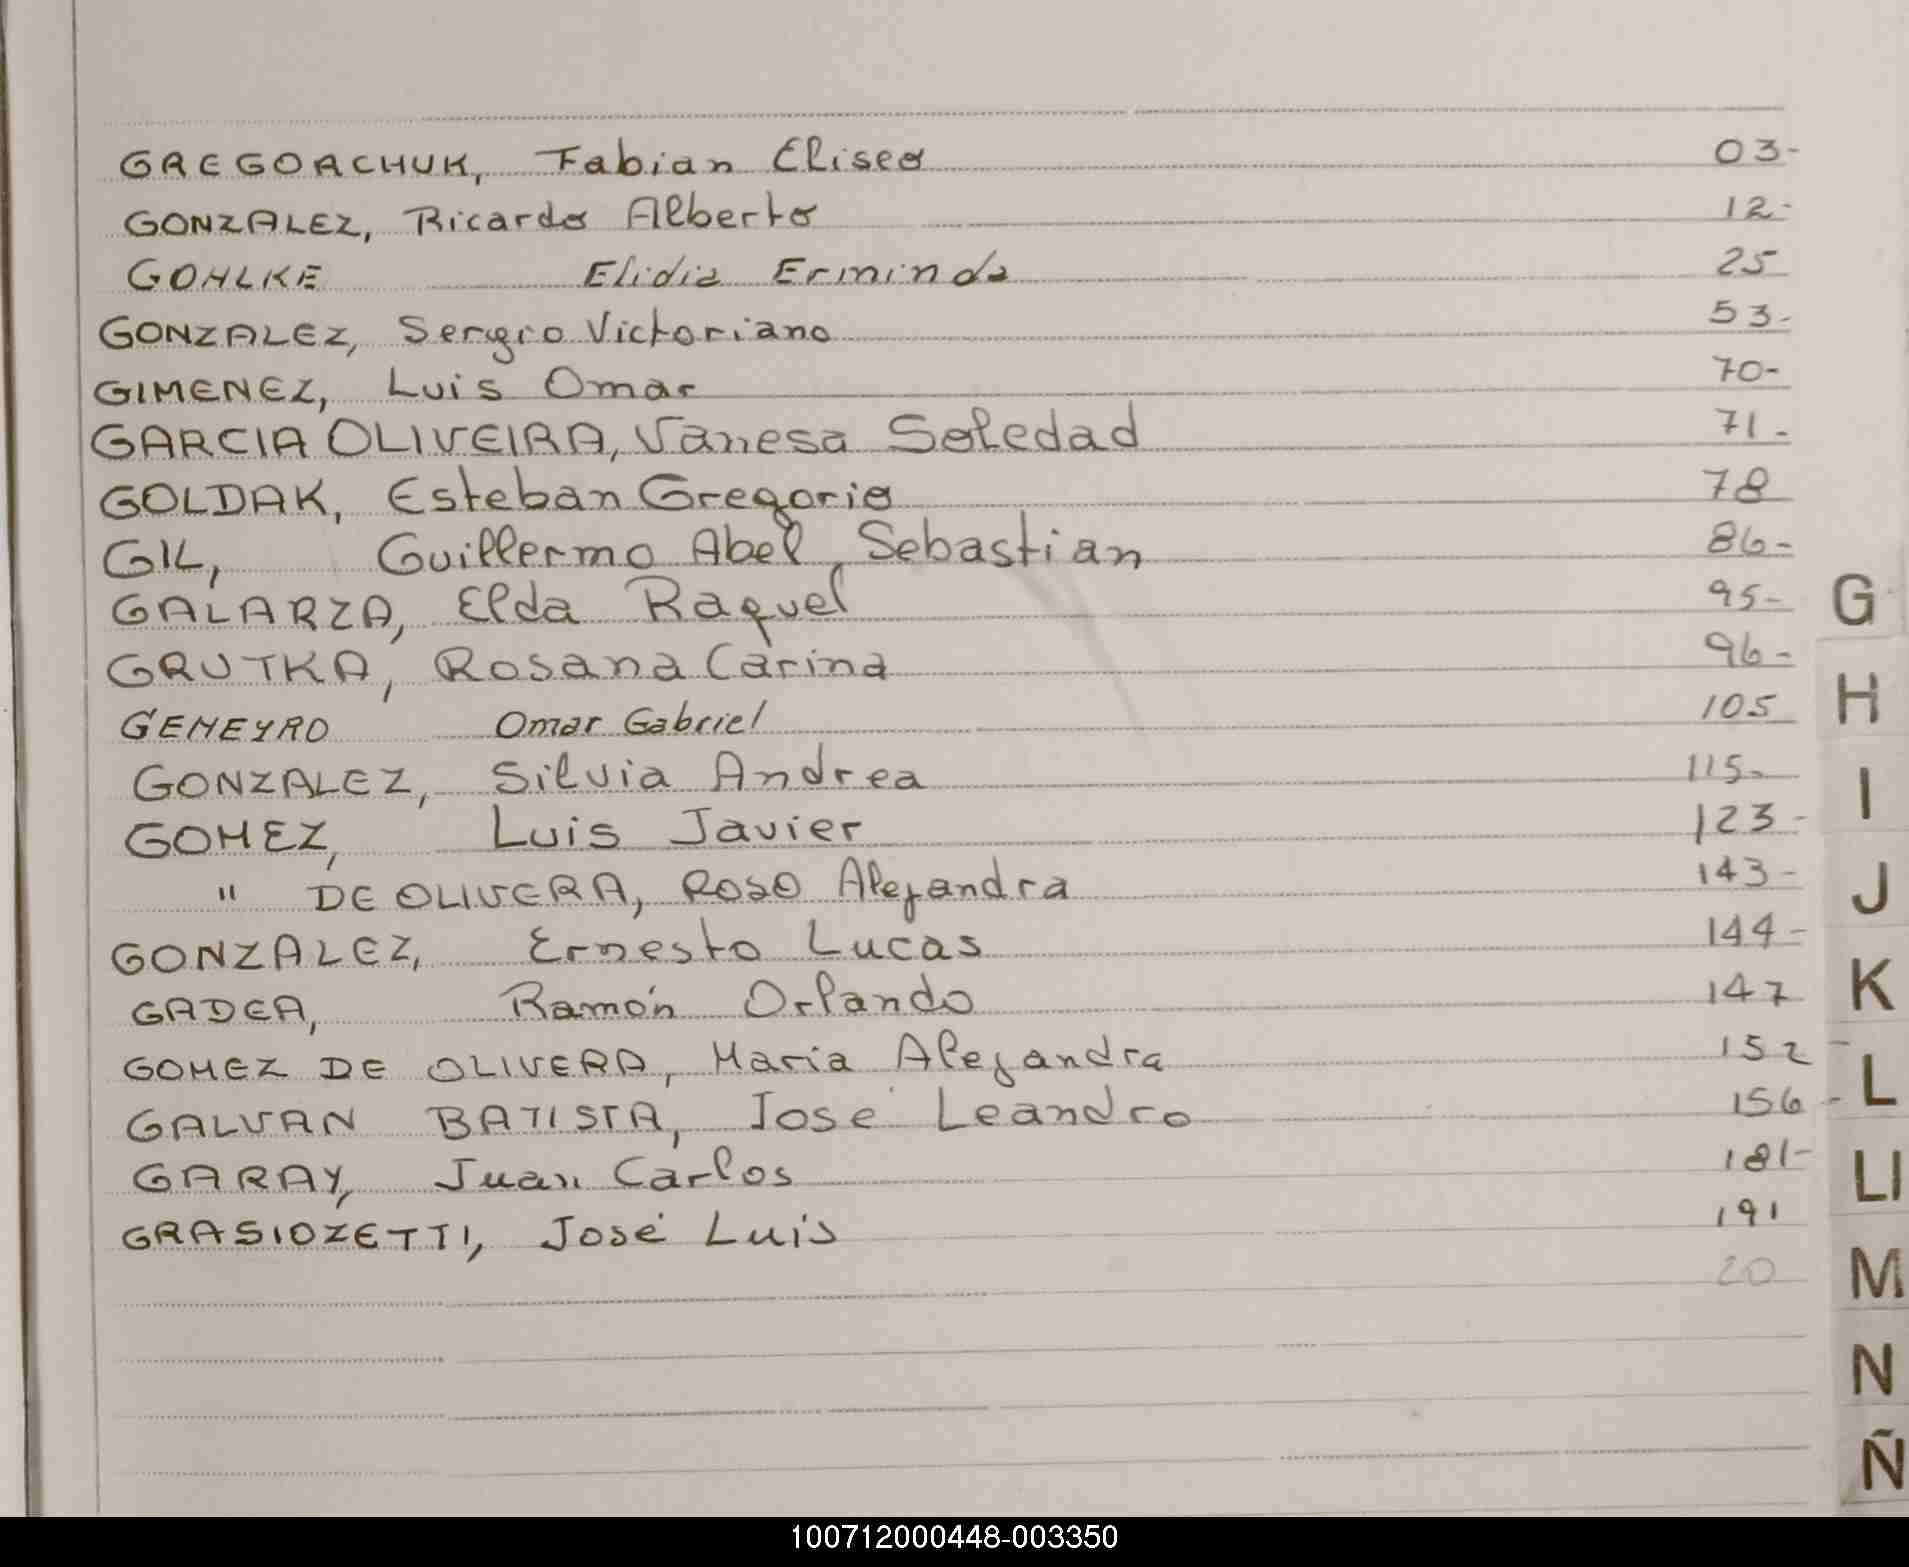 GREGORACHUK, Fabian Eliseo 03-
GONZALEZ, Ricardo Alberto 12-
GOHLKE Elidia Erminda 25
GONZALEZ, Sergio Victoriano 53-
GIMENEZ, Luis Omar 70-
GARCIA OLIVEIRA, Vanesa Soledad 71-
GOLDAK, Esteban Gregorio 78
GIL, Guillermo Abel Sebastian 86-
GALARZA, Elda Raquel 95-
GRUTKA, Rosana Carina 96-
GEMEYRO Omar Gabriel 105
GONZALEZ, Silvia Andrea 115-
GOMEZ, Luis Javier 123-
" DE OLIVERA, Alejandra 143-
GONZALEZ, Ernesto Lucas 144-
GADEA, Ramón Orlando 147
GOMEZ DE OLIVERA, Maria Alejandra 152-
GALVAN BATISTA, Jose Leandro 156-
GARAY, Juan Carlos 181-
GRASIOZETTI, José Luis 191
20
G
H
I
J
K
L
Ll
M
N
Ñ
100712000448-003350